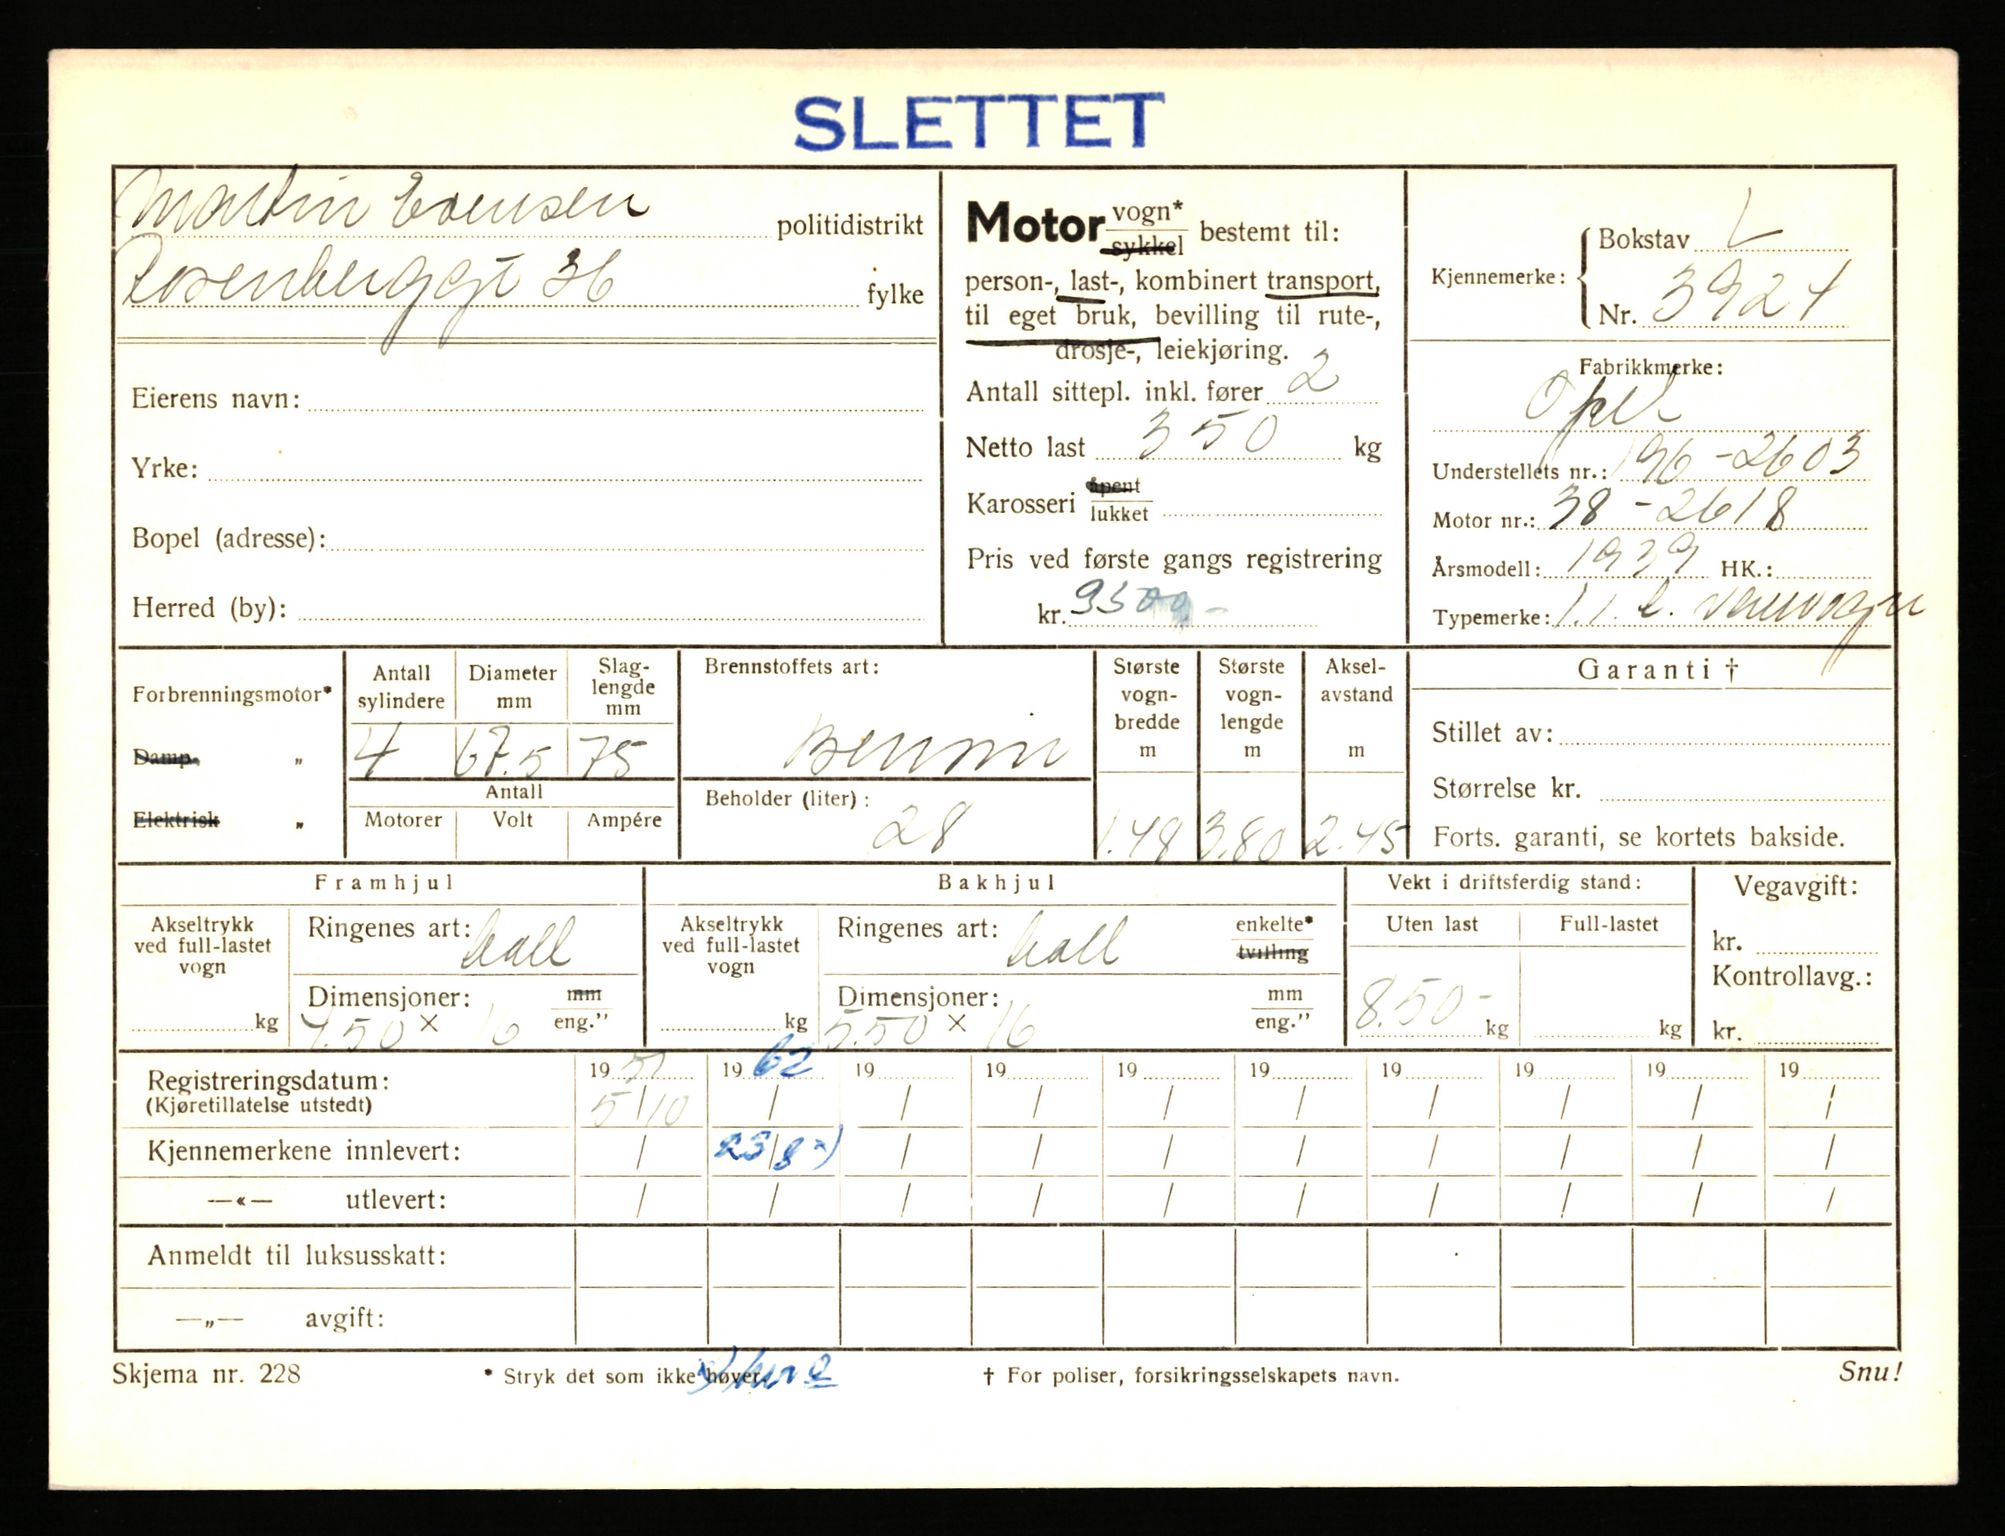 SLETTET
Martin Evensen politidistrikt
Rosenberggt 36 fylke
Eierens navn:
Yrke:
Bopel (adresse):
Herred (by):
Motor vogn* sykkel bestemt til:
person-, last-, kombinert transport,
til eget bruk, bevilling til rute-,
drosje-, leiekjøring.
Antall sittepl. inkl. fører 2
Netto last 350 kg
Karosseri åpent lukket
Pris ved første gangs registrering
kr. 9500 -
Kjennemerke: Bokstav L
Nr. 3924
Fabrikkmerke:
Opel
Understellets nr.: 196-2603
Motor nr.: 38-2618
Årsmodell: 1939 HK.:
Typemerke: l. varevogn
Forbrenningsmotor*
Damp „
Elektrisk „
Antall sylindere Diameter mm Slaglengde mm
4 67.5 75
Antall
Motorer Volt Ampére
Brennstoffets art:
Bensin
Beholder (liter):
28
Største vognbredde m
1.48
Største vognlengde m
3.80
Akselavstand m
2.45
Garanti †
Stillet av:
Størrelse kr.
Forts. garanti, se kortets bakside.
Framhjul
Akseltrykk ved full-lastet vogn
kg
Ringenes art: ball
Dimensjoner: mm
4.50 × 16 eng."
Bakhjul
Akseltrykk ved full-lastet vogn
kg
Ringenes art: ball enkelte* tvilling
Dimensjoner: mm
5.50 × 16 eng."
Vekt i driftsferdig stand:
Uten last Full-lastet
850 - kg kg
Vegavgift:
kr.
Kontrollavg.:
kr.
Registreringsdatum: 19 51 19 62 19 19 19 19 19 19 19 19
(Kjøretillatelse utstedt) 5/10 / / / / / / / / /
Kjennemerkene innlevert: / 23/8 / / / / / / / /
—«— utlevert: / / / / / / / / / /
Anmeldt til luksusskatt:
—„— avgift:
Skjema nr. 228
* Stryk det som ikke høver.
† For poliser, forsikringsselskapets navn.
Snu!